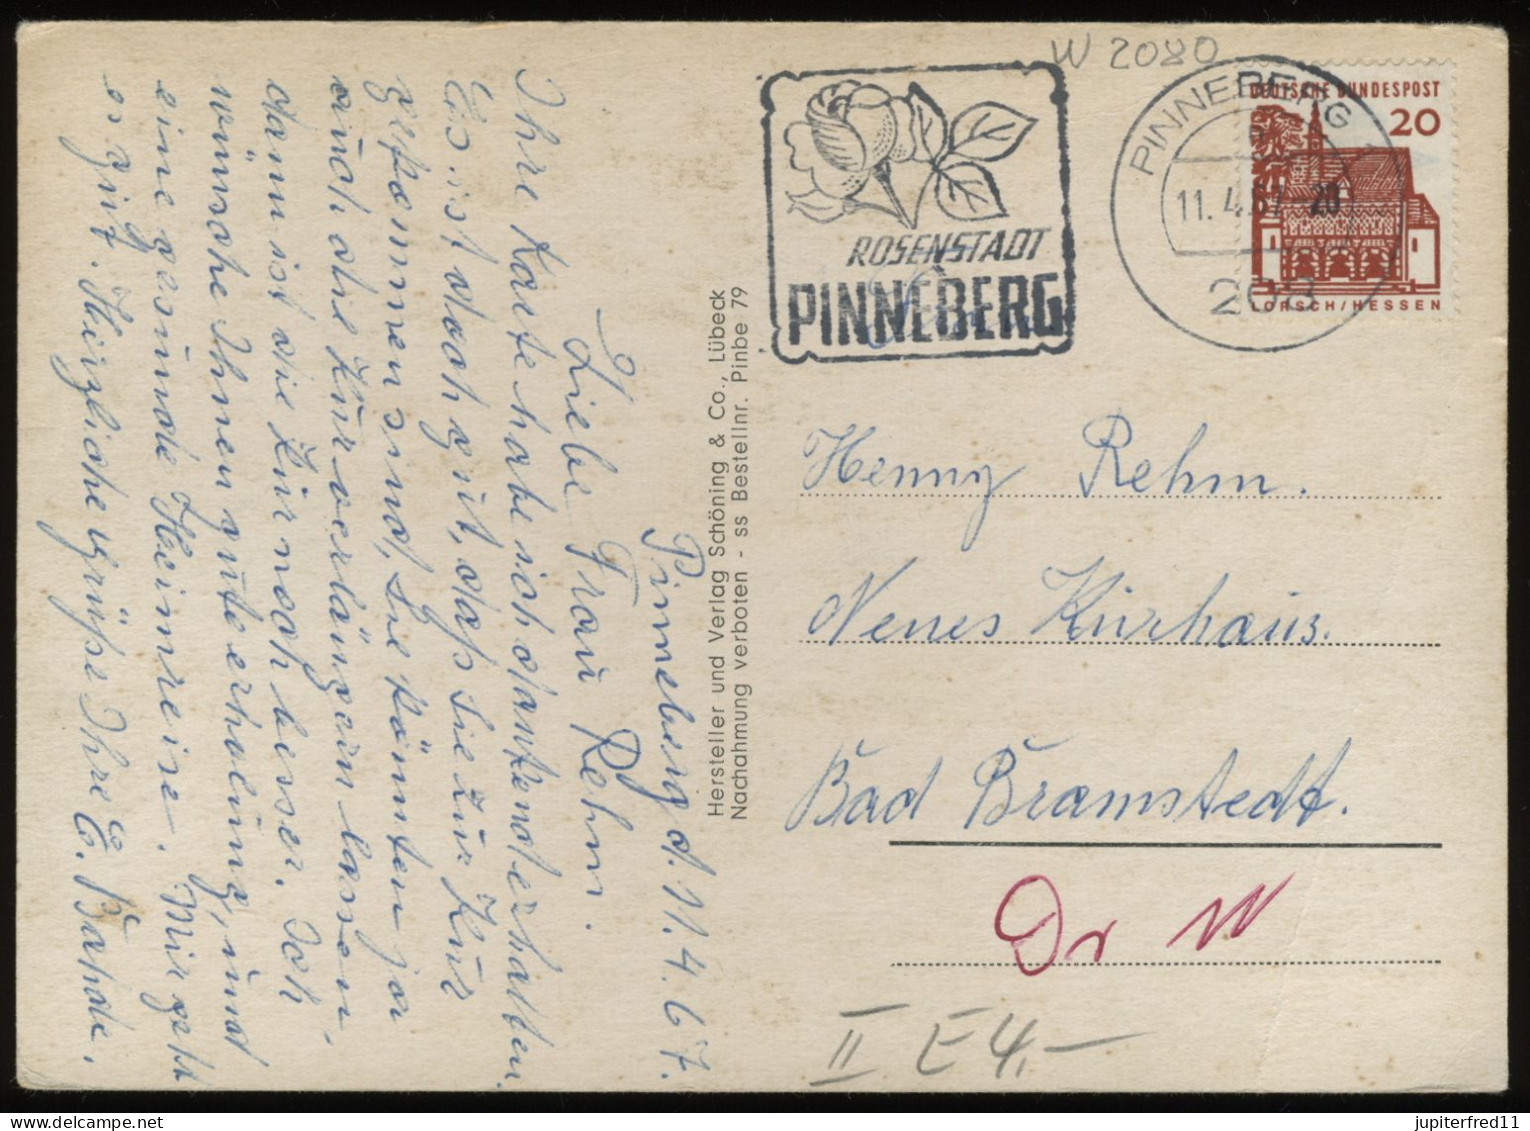 W 2080
ROSENSTADT
PINNEBERG
PINNEBERG
11. 4.67-20
208
DEUTSCHE BUNDESPOST
20
LORSCH/HESSEN
Pinneberg d. 11. 4. 67.
Liebe Frau Rehm.
Ihre Karte habe ich dankend erhalten.
Es ist doch gut, daß Sie zur Kur
gekommen sind, Sie könnten ja
auch die Kur verlängern lassen,
dann ist die Zir noch besser. Ich
wünsche Ihnen gute erholung, und
eine gesunde Heimreise. Mir geht
es gut. Herzliche Grüße Ihre E. Bahde.
Hersteller und Verlag Schöning & Co., Lübeck
Nachahmung verboten - ss Bestellnr. Pinbe 79
Henny Rehm.
Neues Kurhaus.
Bad Bramstedt.
Dr W
II E 4.—
jupiterfred11